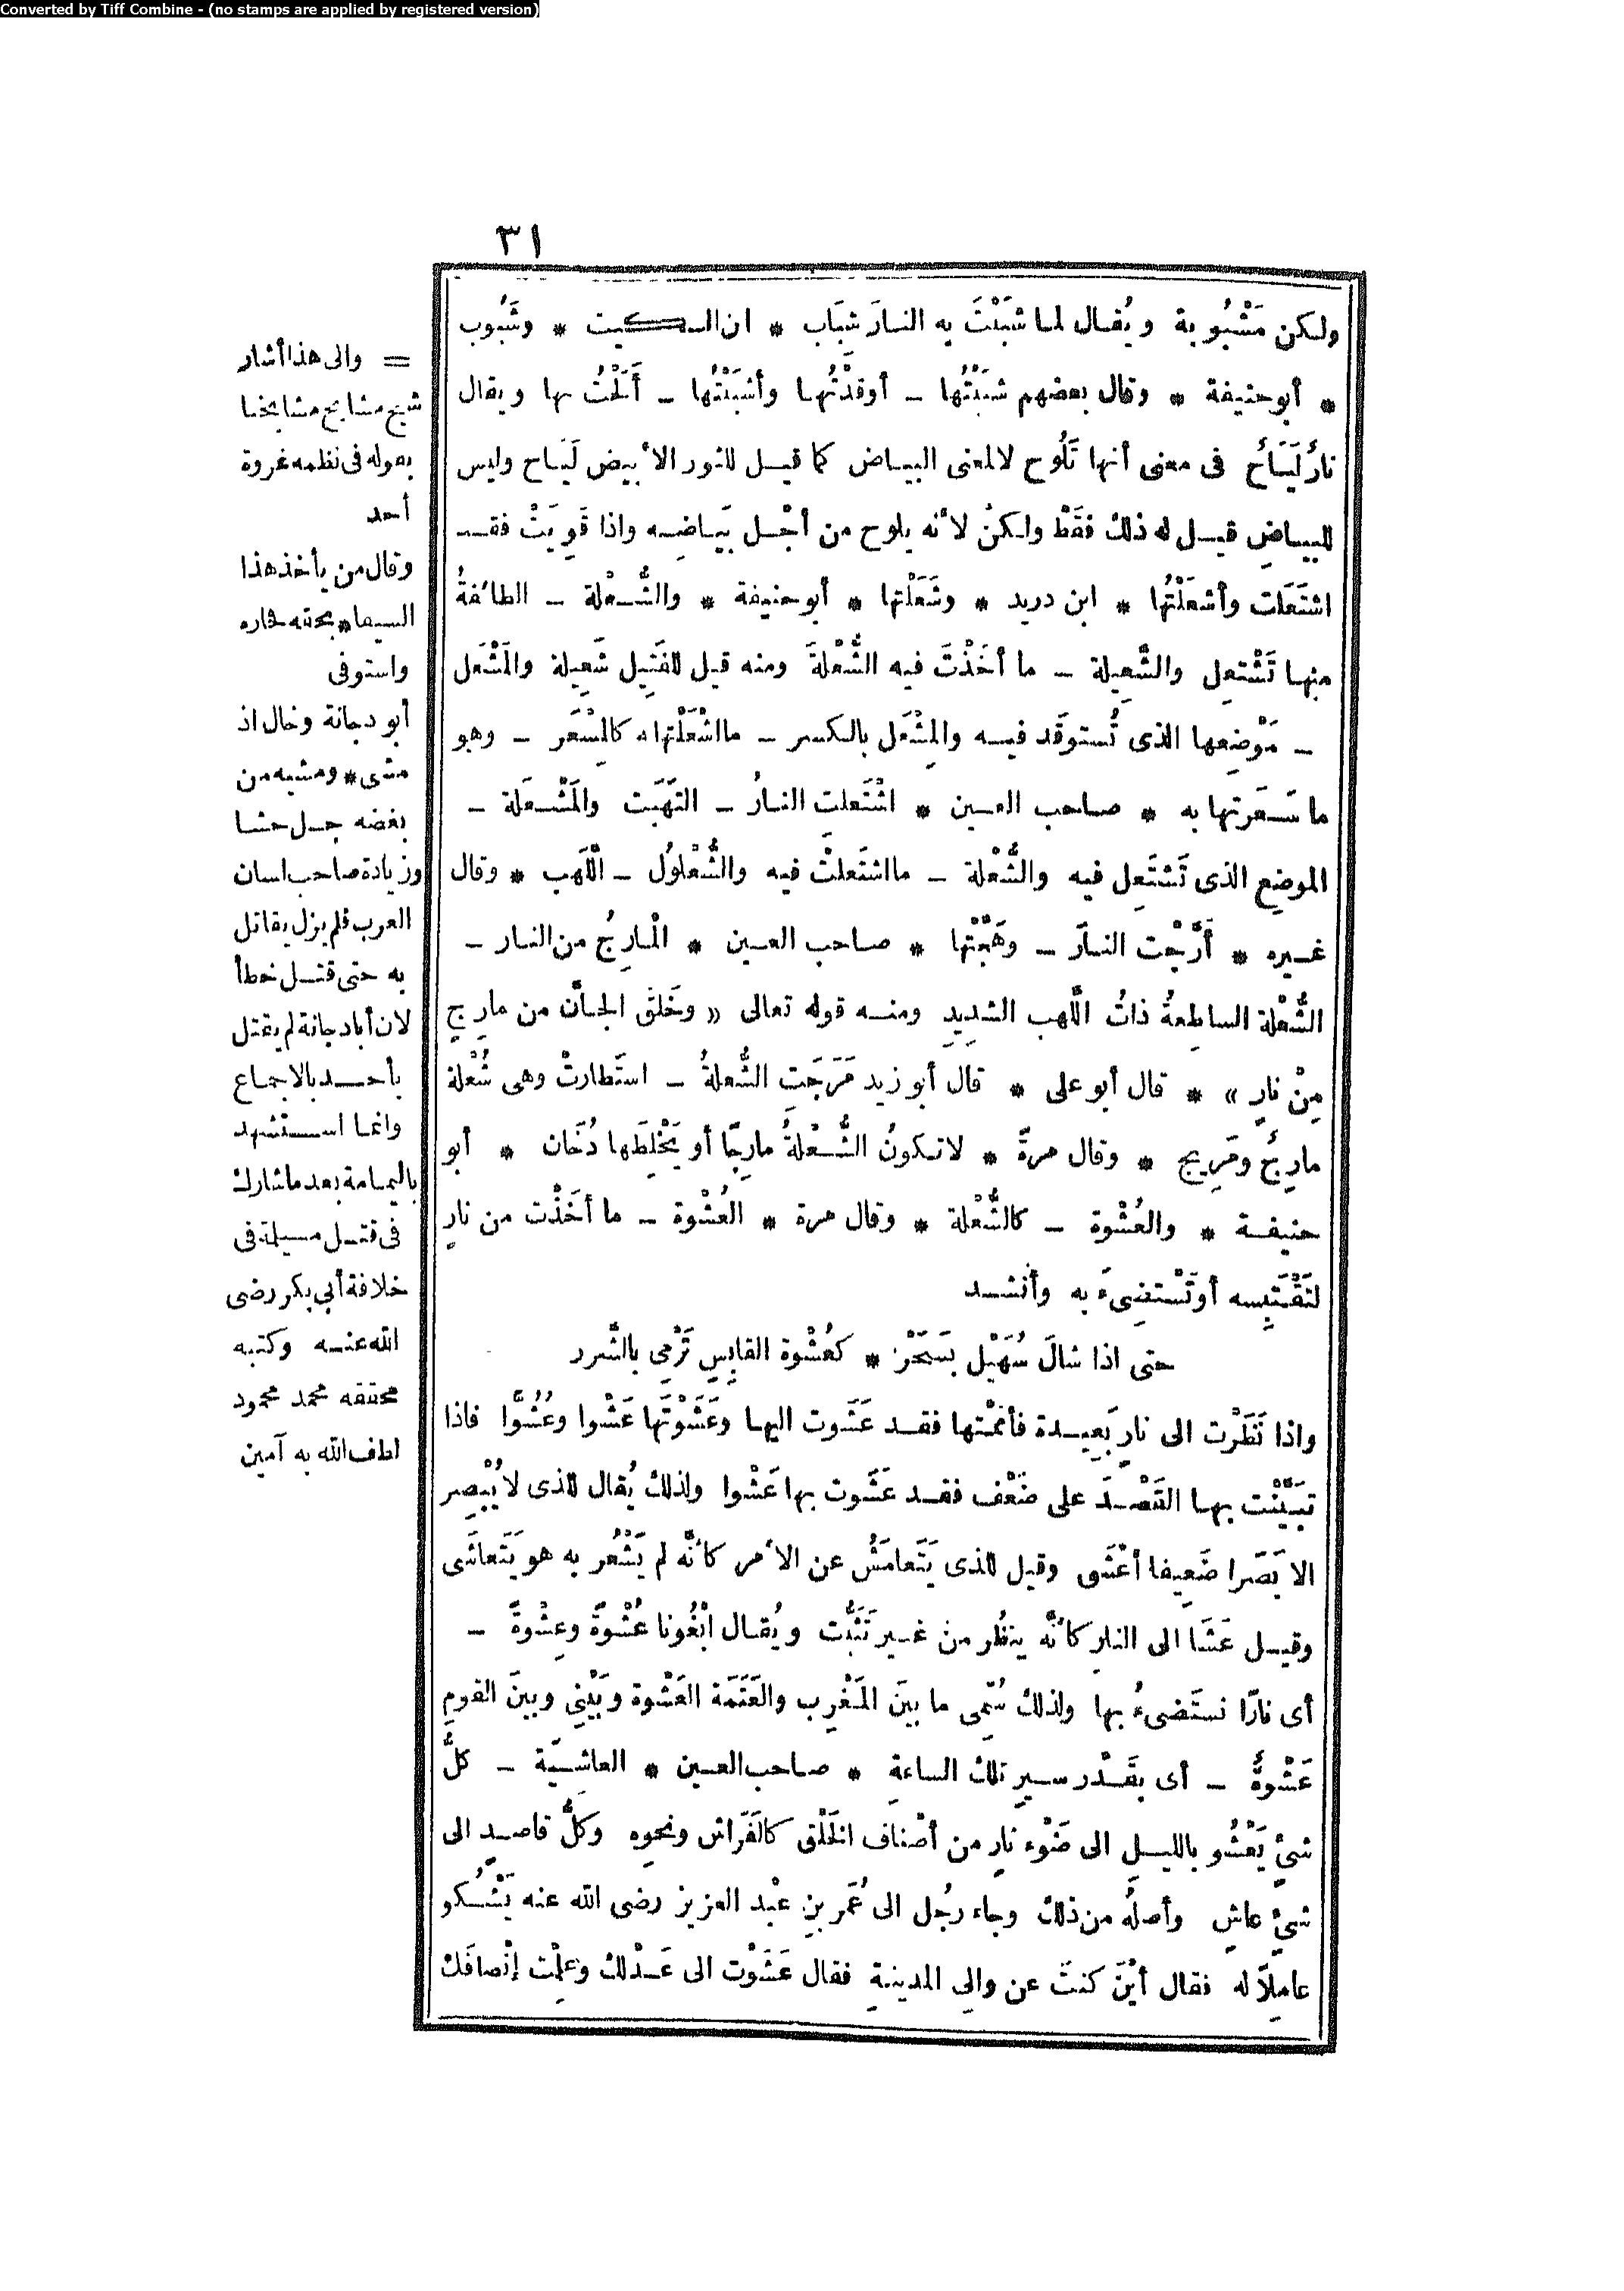 Converted by Tiff Combine - (no stamps are applied by registered version)
٣١
ولكن مَشْبُوبة ويُقال لما شَبَبْتَ به النارَ شِبَاب * ابن السكيت * وشَبُوب
* أبو حنيفة * وقال بعضهم شَبَبْتُها – أوقَدْتُها وأشبَبْتُها – أَلَحْتُ بها ويقال
نارٌ لَيَاحٌ فى معنى أنها تَلُوح لا لمعنى البياض كما قيل للثور الأبيض لَيَاح وليس
للبياضِ قيل له ذلك فقَطْ ولكنْ لأنه يلوح من أجْل بَيَاضِه واذا قَوِيَتْ فقد
اشتَعَلَت وأشعَلْتُها * ابن دريد * وشَعَلْتها * أبو حنيفة * والشُّعْلة – الطائفةُ
منها تَشْتعِل والشَّعِيلة – ما أخَذْتَ فيه الشُّعْلةَ ومنه قيل للفَتِيل شَعِيلة والمَشْعَل
– مَوْضِعها الذى تُستوقَد فيه والمِشْعَل بالكسر – ما اشْعَلْتها به كالمِسْعَر – وهو
ما سَعَرتها به * صاحب العين * اشْتَعلت النارُ – التَهَبَت والمَشْعَلة –
الموضِع الذى تَشتَعِل فيه والشُّعْلة – ما اشتَعلتْ فيه والشُّعْلولُ – اللَّهَب * وقال
غيره * أَرَّجْت النارَ – وهَّجْتها * صاحب العين * المارِجُ من النار –
الشُّعْلة الساطِعةُ ذاتُ اللَّهب الشديدِ ومنه قوله تعالى « وخَلَق الجانَّ من مارِجٍ
مِنْ نارٍ » * قال أبو على * قال أبو زيد مَرَجَت الشُّعلةُ – استَطارتْ وهى شُعْلة
مارِجٌ ومَرِيج * وقال مرةً * لا تكونُ الشُّعْلةُ مارِجًا أو يَخْلِطَها دُخَان * أبو
حنيفة * والعُشْوة – كالشُّعْلة * وقال مرة * العُشْوة – ما أخَذْت من نارٍ
لتَقْتَبِسه أو تَسْتضِىءَ به وأنشد
حتى اذا شالَ سُهَيْل بسَحَرْ * كعُشْوة القابِسِ تَرْمِى بالشَّرر
واذا نَظَرْت الى نارٍ بَعِيدة فأمَمْتها فقد عَشَوت اليها وعَشَوْتَها عَشْوا وعُشُوًّا فاذا
تبَيَّنْت بها القَصْدَ على ضَعْف فقد عَشَوت بها عَشْوا ولذلك يُقال للذى لا يُبْصِر
الا بَصَرا ضَعِيفا أعْشَى وقيل للذى يَتَعامَشُ عن الأمر كأنَّه لم يَشْعُر به هو يَتَعاشَى
وقيل عَشَا الى النارِ كأنَّه ينظُر من غير تَثَبُّت ويُقال ابْغُونا عُشْوةً وعِشْوةً –
أى نارًا نستَضىءُ بها ولذلك سُمِّى ما بينَ المَغْرِب والعَتَمَة العَشْوة وبَيْنِى وبينَ القومِ
عَشْوةٌ – أى بقَدْر سيرِ تلك الساعةِ * صاحب العين * العاشِيَة – كلُّ
شىْءٍ يَعْشُو بالليل الى ضَوْء نارٍ من أصْناف الخَلْق كالفَرَاش ونحوِه وكلُّ قاصدٍ الى
شىْءٍ عاشٍ وأصلُه من ذلك وجاء رجُل الى عُمَر بنِ عبْد العزيز رضى الله عنه يَشْكو
عامِلًا له فقال أيْنَ كنتَ عن والِى المدينةِ فقال عَشَوْت الى عَدْلك وعلِمْت إنْصافَك
= والى هذا أشار
شيخ مشايخ مشايخنا
بقوله فى نظمه غزوة
أحد
وقال من يأخذ هذا
السيفا * بحقه فحازه
واستوفى
أبو دجانة وخال اذ
مشى * ومشيه من
بغضه جل حشا
وزيادة صاحب لسان
العرب فلم يزل يقاتل
به حتى قتل خطأ
لان أبا دجانة لم يقتل
بأحد بالاجماع
وانما استشهد
باليمامة بعد ما شارك
فى قتل مسيلمة فى
خلافة أبى بكر رضى
الله عنه وكتبه
محققه محمد محمود
لطف الله به آمين